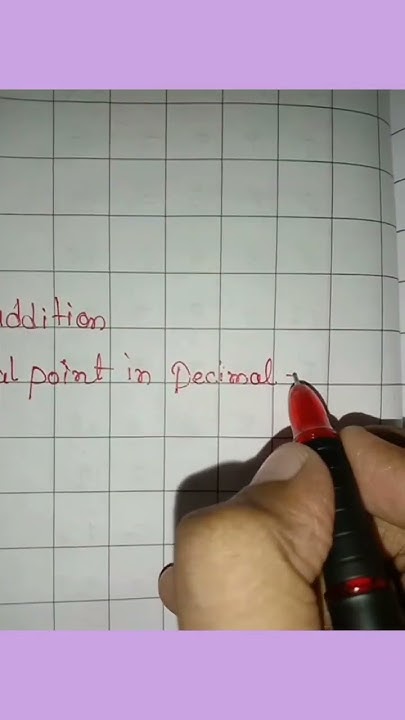 addition
al point in Decimal -